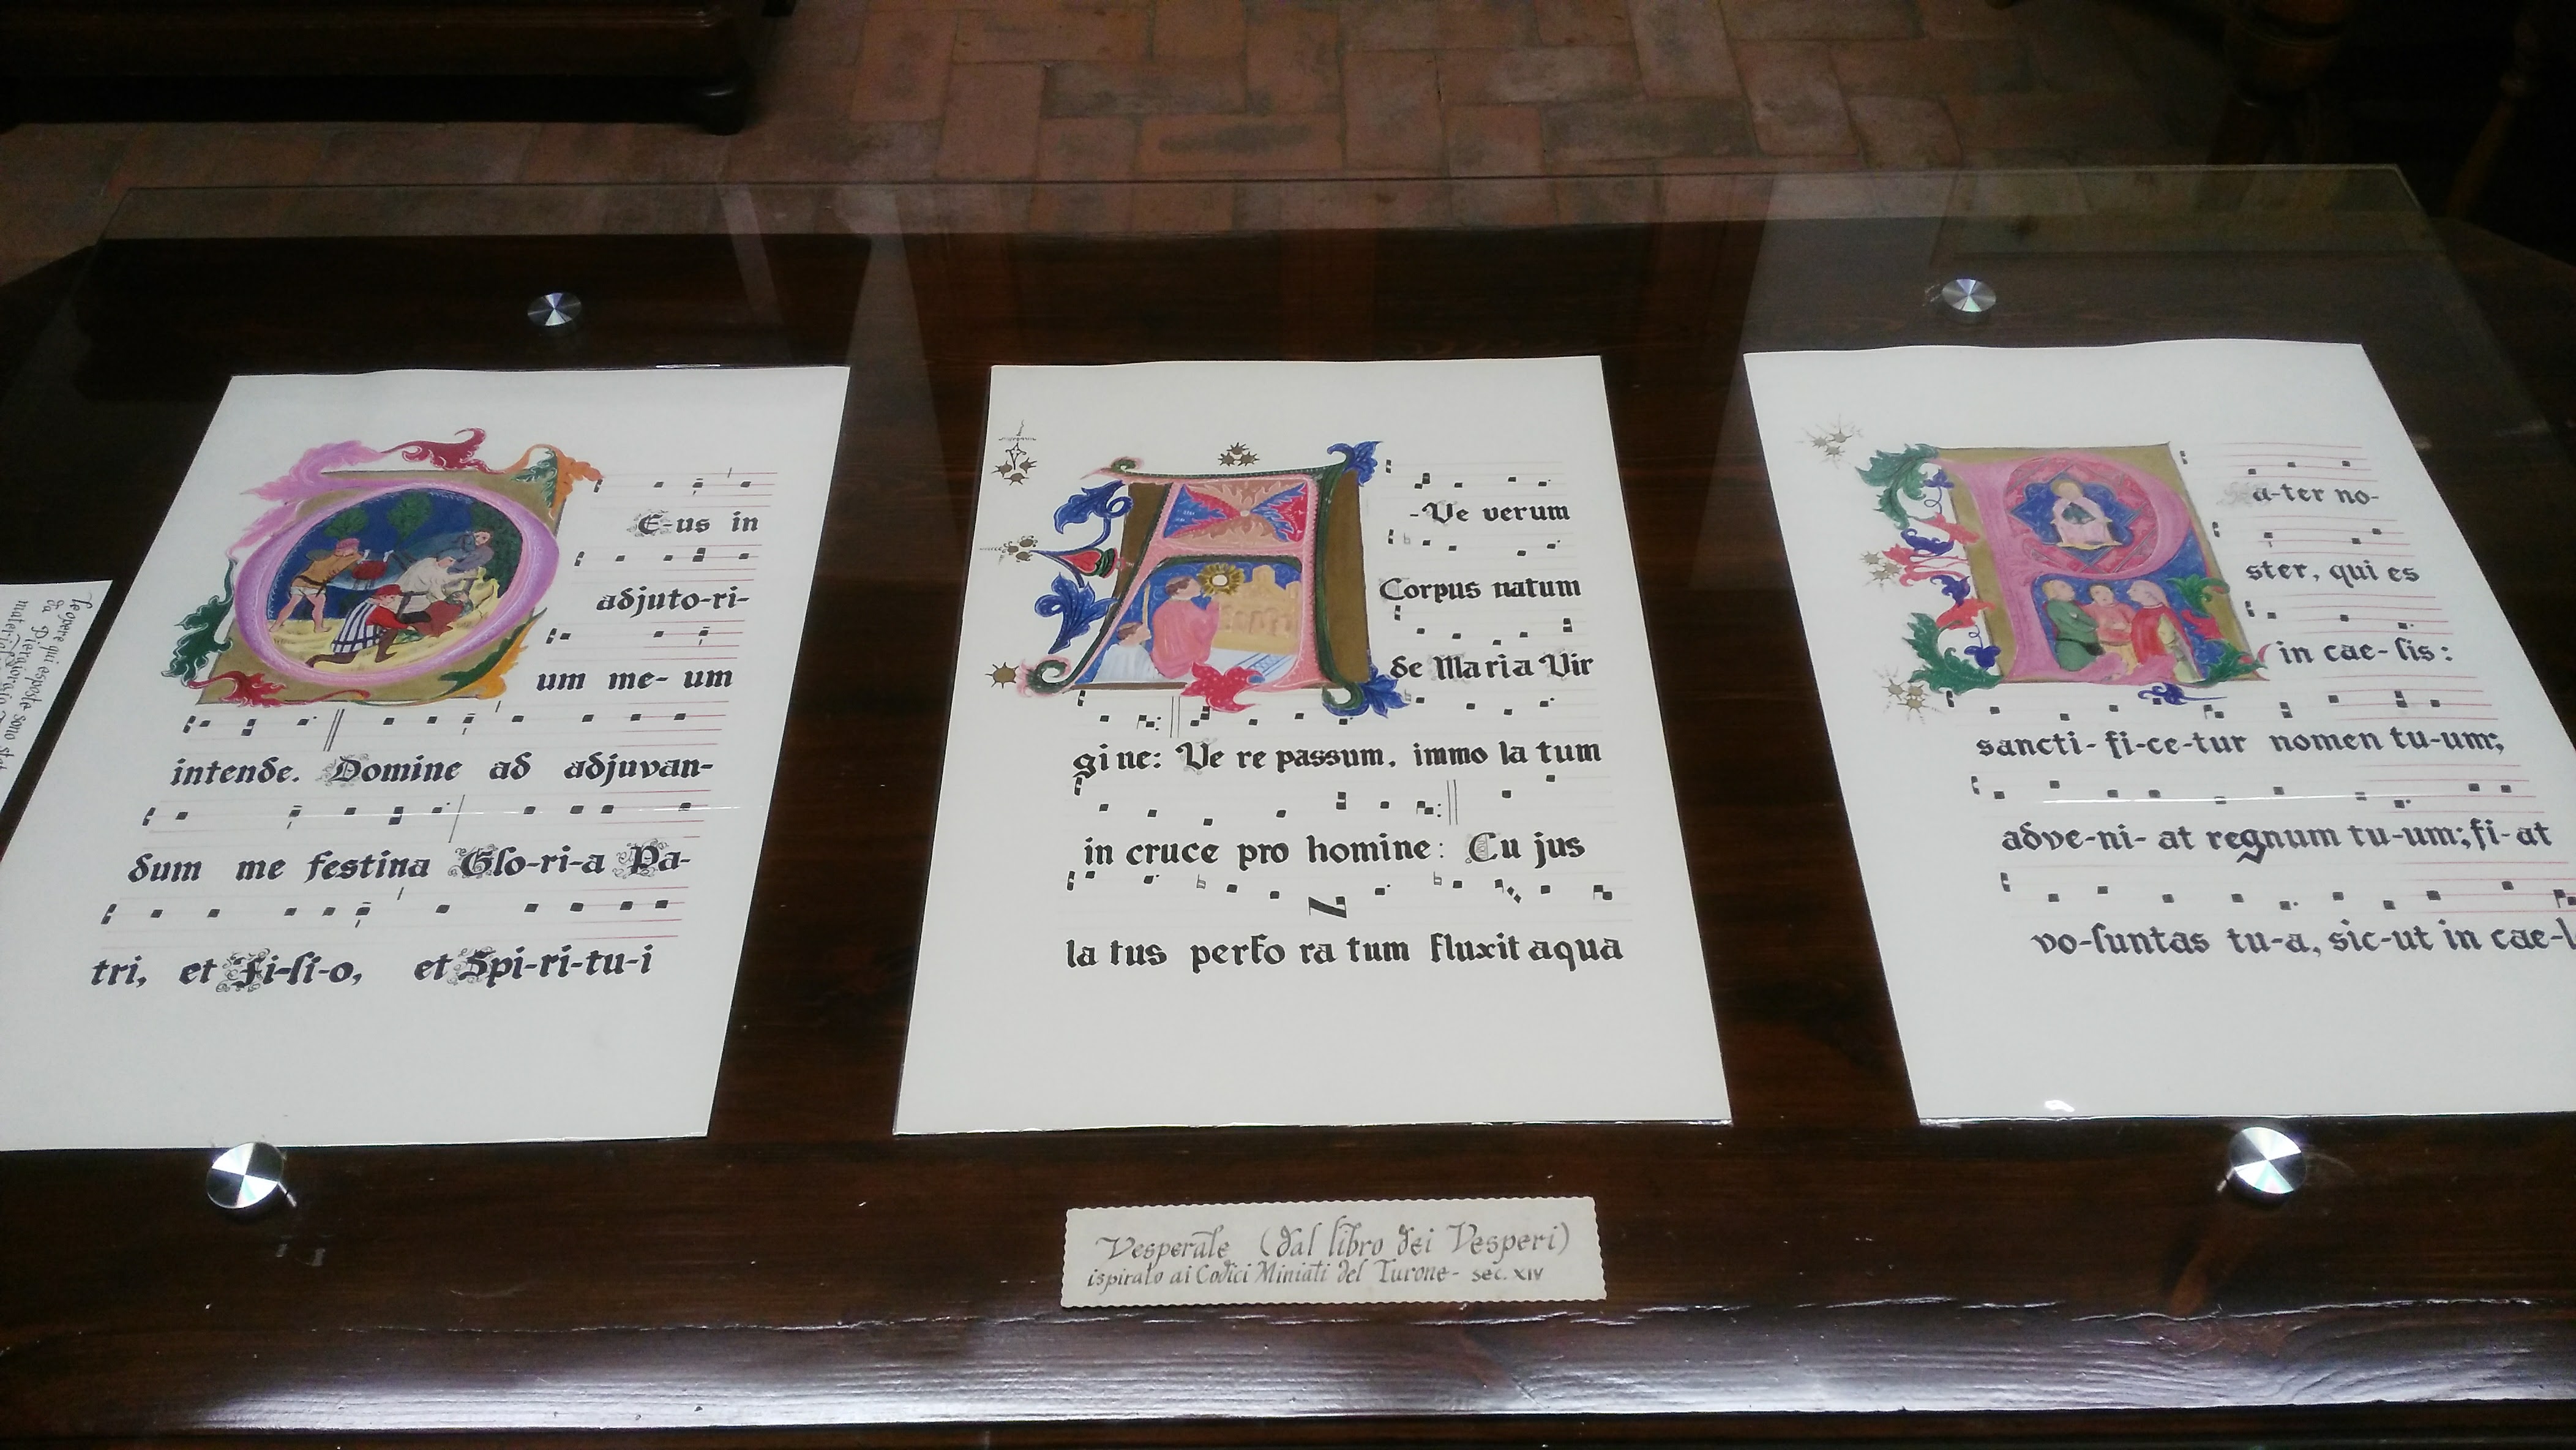 Le opere qui esposte sono
da Piergiorgio
E-us in
adjuto-ri-
um me- um
intende. Domine ad adjuvan-
dum me festina Glo-ri-a Pa-
tri, et Fi-li-o, et Spi-ri-tu-i
A
-Ve verum
Corpus natum
de Maria Vir
gine: Ve re passum, immo la tum
in cruce pro homine: Cu jus
la tus perfo ra tum fluxit aqua
P
a-ter no-
ster, qui es
in cae-lis:
sancti-fi-ce-tur nomen tu-um;
adve-ni-at regnum tu-um; fi-at
vo-luntas tu-a, sic-ut in cae-l
Vesperale (dal libro dei Vesperi)
ispirato ai Codici Miniati del Turone - sec. XIV